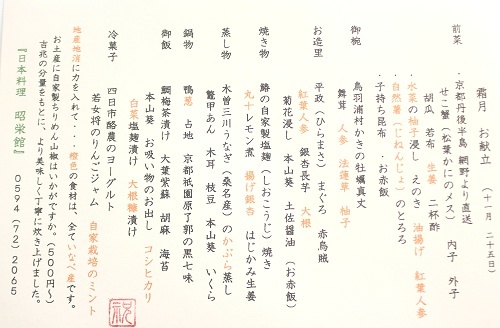 霜月 お献立 (十一月 二十五日)
前菜 ・京都丹後半島 網野より直送
せこ蟹(松葉かにのメス) 内子 外子
胡瓜 若布 生姜 二杯酢
・水菜の柚子浸し えのき 油揚げ 紅葉人参
・自然薯(じねんじょ)のとろろ
・子持ち昆布 ・お赤飯
御椀 鳥羽浦村かきの牡蠣真丈
舞茸 人参 法蓮草 柚子
お造里 平政(ひらまさ) まぐろ 赤烏賊
紅葉人参 銀杏長芋 大根
菊花浸し 本山葵 土佐醤油 (お赤飯)
焼き物 鰆の自家製塩麹(しおこうじ)焼き
丸十レモン煮 揚げ銀杏 はじかみ生姜
蒸し物 木曽三川うなぎ(桑名産)のかぶら蒸し
鼈甲あん 木耳 枝豆 本山葵 いくら
鍋物 鴨葱 占地 京都祇園原了郭の黒七味
御飯 鯛梅茶漬け 大葉紫蘇 胡麻 海苔
本山葵 お吸い物のお出し コシヒカリ
白菜塩麹漬け 大根糠漬け
冷菓子 四日市酪農のヨーグルト
若女将のりんごジャム 自家栽培のミント
地産地消に力を入れて・・・橙色の食材は、全ていなべ産です。
お土産に自家製ちりめん山椒はいかがですか。(500円〜)
吉兆の分量をもとに、より美味しく丁寧に炊き上げました。
『日本料理 昭栄館』 0594(72)2065